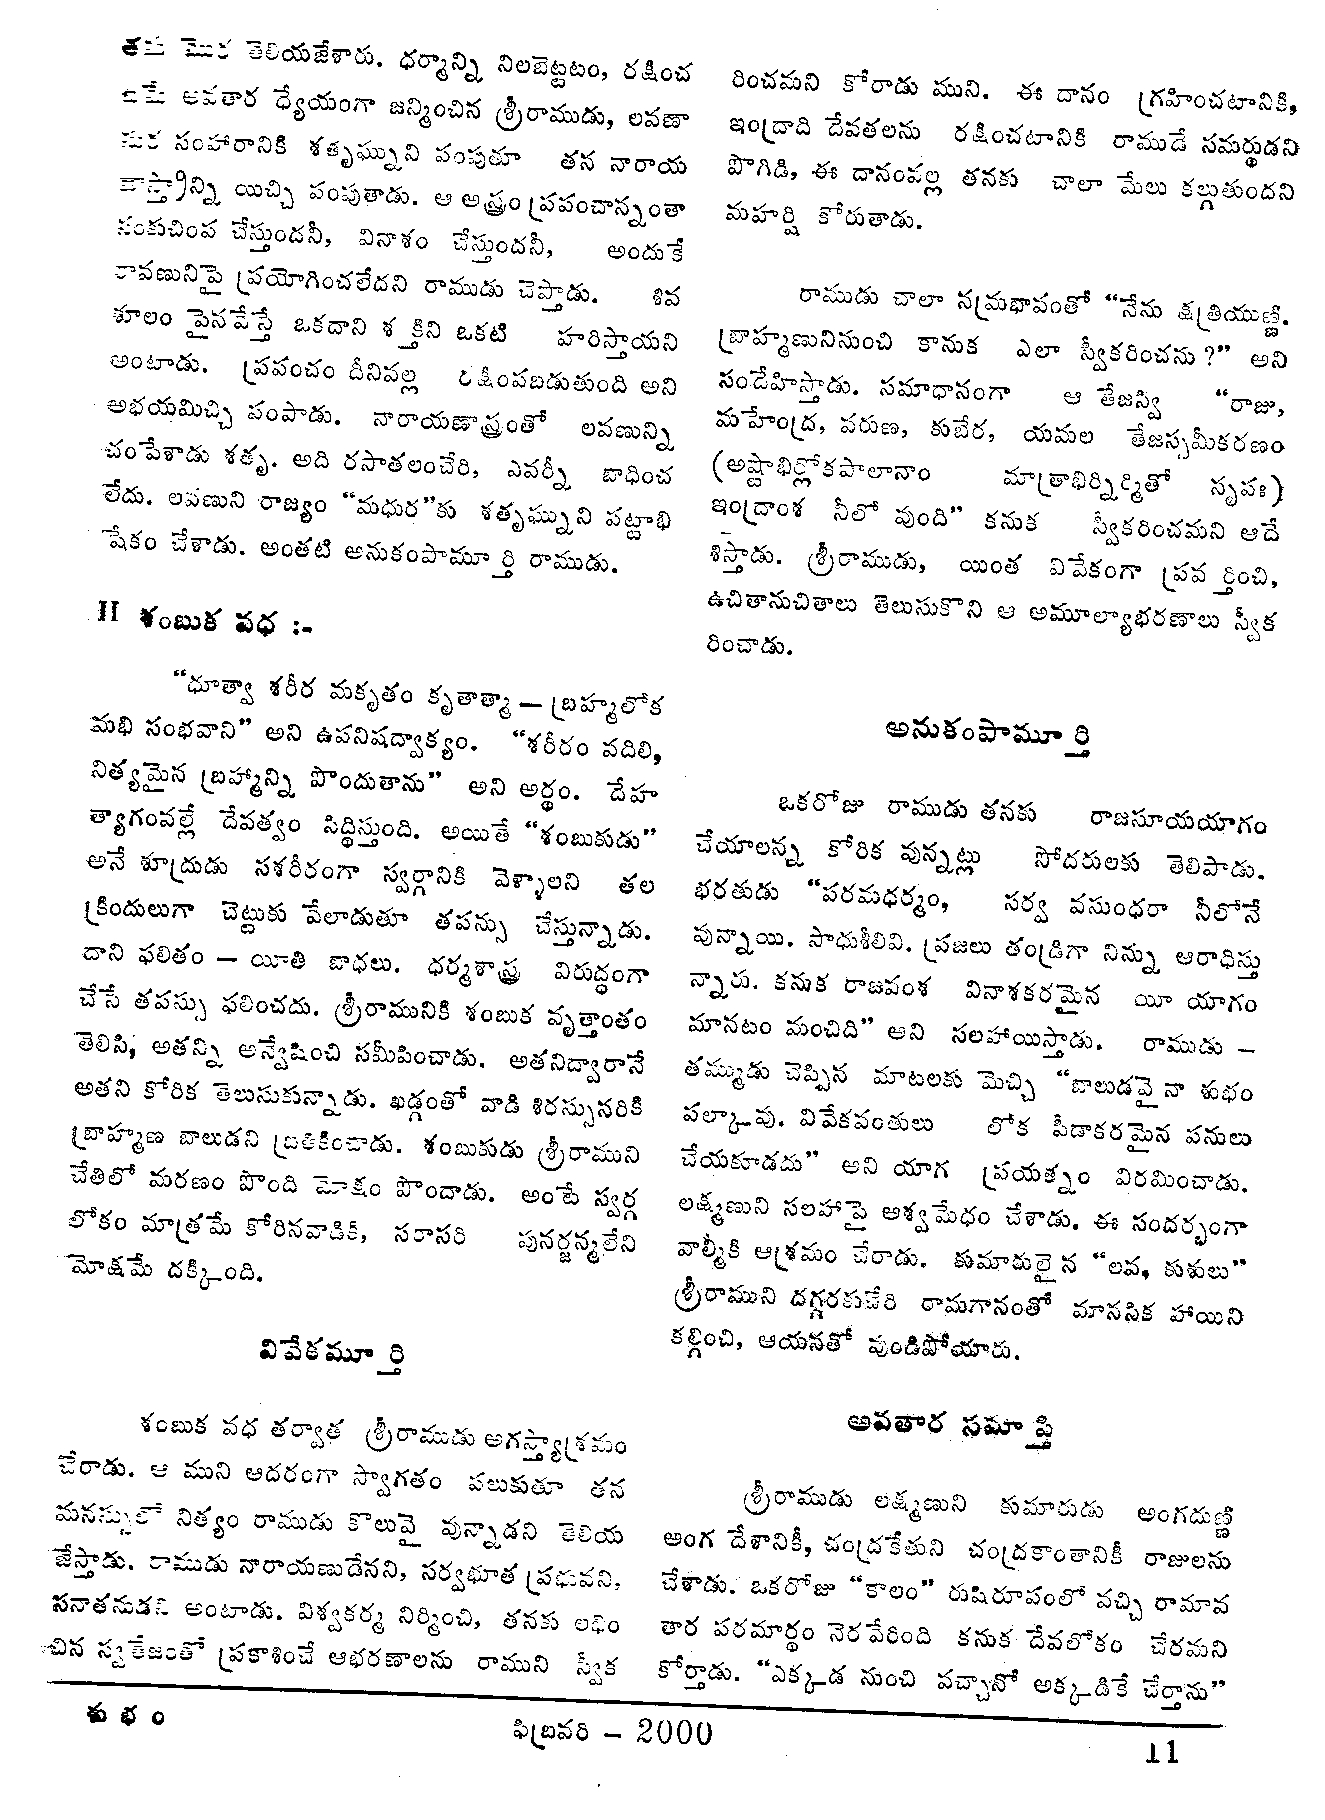 తెలియజేశారు. ధర్మాన్ని నిలబెట్టటం, రక్షించ
అవతార ధ్యేయంగా జన్మించిన శ్రీరాముడు, లవణా
సంహారానికి శతృఘ్నుని పంపుతూ తన నారాయ
ణాస్త్రాన్ని యిచ్చి పంపుతాడు. ఆ అస్త్రం ప్రపంచాన్నంతా
సంకుచింప చేస్తుందనీ, వినాశం చేస్తుందనీ, అందుకే
రావణునిపై ప్రయోగించలేదని రాముడు చెప్తాడు. శివ
శూలం పైనవేస్తే ఒకదాని శక్తిని ఒకటి హరిస్తాయని
అంటాడు. ప్రపంచం దీనివల్ల రక్షింపబడుతుంది అని
అభయమిచ్చి పంపాడు. నారాయణాస్త్రంతో లవణున్ని
చంపేశాడు శతృ. అది రసాతలంచేరి, ఎవర్నీ బాధించ
లేదు. లవణుని రాజ్యం “మధుర”కు శతృఘ్నుని పట్టాభి
షేకం చేశాడు. అంతటి అనుకంపామూర్తి రాముడు.
II శంబుక వధ :-
“ధూత్వా శరీర మకృతం కృతాత్మా — బ్రహ్మలోక
మభి సంభవాని” అని ఉపనిషద్వాక్యం. “శరీరం వదిలి,
నిత్యమైన బ్రహ్మాన్ని పొందుతాను” అని అర్థం. దేహ
త్యాగంవల్లే దేవత్వం సిద్ధిస్తుంది. అయితే “శంబుకుడు”
అనే శూద్రుడు సశరీరంగా స్వర్గానికి వెళ్ళాలని తల
క్రిందులుగా చెట్టుకు వేలాడుతూ తపస్సు చేస్తున్నాడు.
దాని ఫలితం — యీతి బాధలు. ధర్మశాస్త్ర విరుద్ధంగా
చేసే తపస్సు ఫలించదు. శ్రీరామునికి శంబుక వృత్తాంతం
తెలిసి, అతన్ని అన్వేషించి సమీపించాడు. అతనిద్వారానే
అతని కోరిక తెలుసుకున్నాడు. ఖడ్గంతో వాడి శిరస్సునరికి
బ్రాహ్మణ బాలుడని బ్రతికించాడు. శంబుకుడు శ్రీరాముని
చేతిలో మరణం పొంది మోక్షం పొందాడు. అంటే స్వర్గ
లోకం మాత్రమే కోరినవాడికి, సరాసరి పునర్జన్మలేని
మోక్షమే దక్కింది.
వివేకమూర్తి
శంబుక వధ తర్వాత శ్రీరాముడు అగస్త్యాశ్రమం
చేరాడు. ఆ ముని ఆదరంగా స్వాగతం పలుకుతూ తన
మనస్సులో నిత్యం రాముడు కొలువై వున్నాడని తెలియ
జేస్తాడు. రాముడు నారాయణుడేనని, సర్వభూత ప్రభువని,
సనాతనుడని అంటాడు. విశ్వకర్మ నిర్మించి, తనకు లభిం
చిన స్వతేజంతో ప్రకాశించే ఆభరణాలను రాముని స్వీక
రించమని కోరాడు ముని. ఈ దానం గ్రహించటానికి,
ఇంద్రాది దేవతలను రక్షించటానికి రాముడే సమర్థుడని
పొగిడి, ఈ దానంవల్ల తనకు చాలా మేలు కల్గుతుందని
మహర్షి కోరుతాడు.
రాముడు చాలా నమ్రభావంతో “నేను క్షత్రియుణ్ణి.
బ్రాహ్మణునినుంచి కానుక ఎలా స్వీకరించను ?” అని
సందేహిస్తాడు. సమాధానంగా ఆ తేజస్వి “రాజు,
మహేంద్ర, వరుణ, కుబేర, యమల తేజస్సమీకరణం
(అష్టాభిర్లోకపాలానాం మాత్రాభిర్నిర్మితో నృపః)
ఇంద్రాంశ నీలో వుంది” కనుక స్వీకరించమని ఆదే
శిస్తాడు. శ్రీరాముడు, యింత వివేకంగా ప్రవర్తించి,
ఉచితానుచితాలు తెలుసుకొని ఆ అమూల్యాభరణాలు స్వీక
రించాడు.
అనుకంపామూర్తి
ఒకరోజు రాముడు తనకు రాజసూయయాగం
చేయాలన్న కోరిక వున్నట్లు సోదరులకు తెలిపాడు.
భరతుడు “పరమధర్మం, సర్వ వసుంధరా నీలోనే
వున్నాయి. సాధుశీలివి. ప్రజలు తండ్రిగా నిన్ను ఆరాధిస్తు
న్నారు. కనుక రాజవంశ వినాశకరమైన యీ యాగం
మానటం మంచిది” అని సలహాయిస్తాడు. రాముడు —
తమ్ముడు చెప్పిన మాటలకు మెచ్చి “బాలుడవై నా శుభం
పల్కావు. వివేకవంతులు లోక పీడాకరమైన పనులు
చేయకూడదు” అని యాగ ప్రయత్నం విరమించాడు.
లక్ష్మణుని సలహాపై అశ్వమేధం చేశాడు. ఈ సందర్భంగా
వాల్మీకి ఆశ్రమం చేరాడు. కుమారులైన “లవ, కుశులు”
శ్రీరాముని దగ్గరకుచేరి రామగానంతో మానసిక హాయిని
కల్గించి, ఆయనతో వుండిపోయారు.
అవతార సమాప్తి
శ్రీరాముడు లక్ష్మణుని కుమారుడు అంగదుణ్ణి
అంగ దేశానికీ, చంద్రకేతుని చంద్రకాంతానికీ రాజులను
చేశాడు. ఒకరోజు “కాలం” రుషిరూపంలో వచ్చి రామావ
తార పరమార్థం నెరవేరింది కనుక దేవలోకం చేరమని
కోర్తాడు. “ఎక్కడ నుంచి వచ్చానో అక్కడికే చేర్తాను”
శుభం
ఫిబ్రవరి — 2000
11